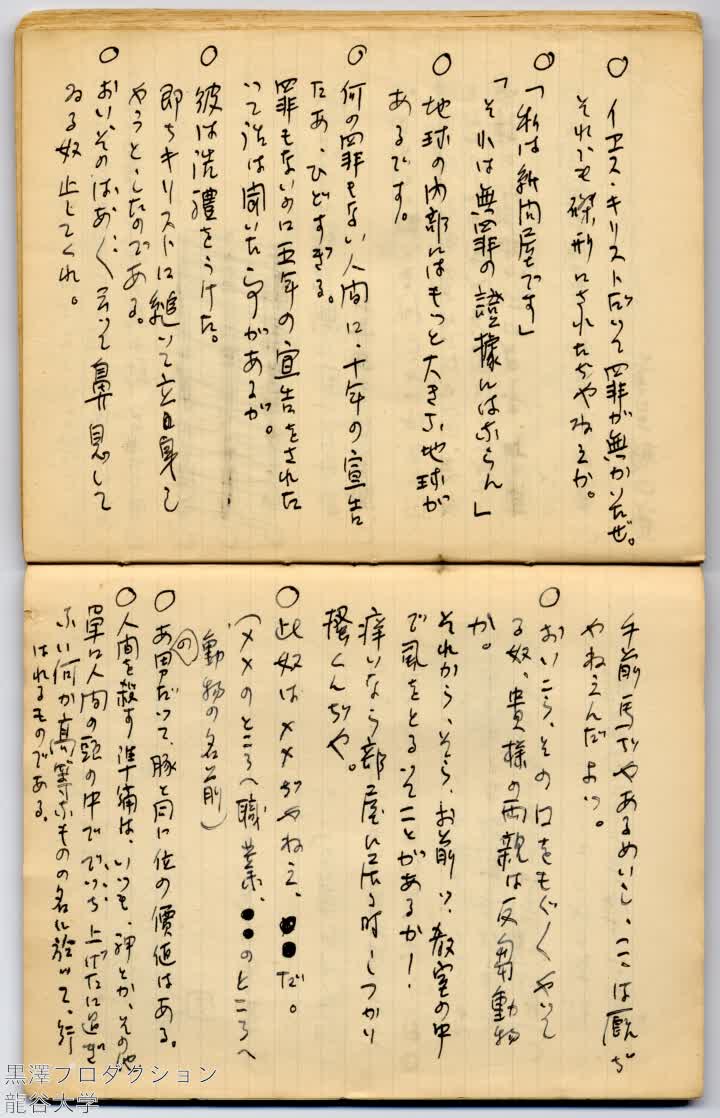 ○ イエス・キリストだって罪が無かったぜ。
それでも磔刑にされたぢやねえか。
○ 「私は新聞屋です」
「それは無罪の證據にはならん」
○ 地球の内部にはもっと大きな地球が
あるです。
○ 何の罪もない人間に、十年の宣告
たあ、ひどすぎる。
罪もないのに五年の宣告をされた
って話は聞いた事があるが。
○ 彼は洗禮をうけた。
即ちキリストに縋いて立身し
やうとしたのである。
○ おい、そのはあ〱云って鼻息して
ゐる奴止してくれ。
手前馬ぢやあるめいし、ここは厩ぢ
やねえんだよ。
○ おいこら、その口をもぐ〱やって
る奴、貴様の両親は反芻動物
か。
それから、そら、お前、教室の中
で虱をとるってことがあるか！
痒いなら部屋に居る時しつかり
掻くんぢや。
○ 此奴は××ぢやねえ、●●だ。
（××のところへ職業、●●のところへ
動物の名前）
○ あの男だって、豚と同じ位の價値はある。
○ 人間を殺す準備は、いつも、神とか、その他
單に人間の頭の中ででっち上げたに過ぎ
ない何か高等なものの名に於いて、行
はれるものである。
黒澤プロダクション
龍谷大学